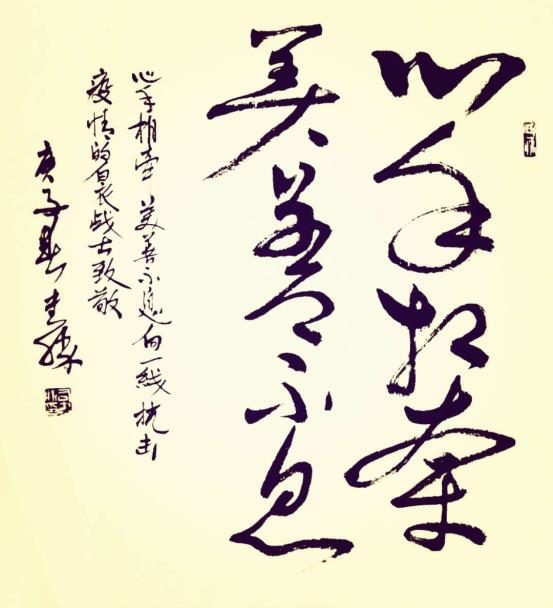 心手相牵
美善不息
心手相牵美善不息向一线抗击
疫情的白衣战士致敬
庚子春